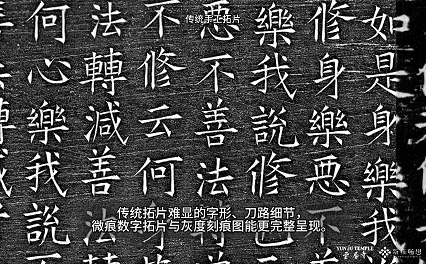 传统手工拓片
如是身樂
修身樂惡
樂我說修
惡不善法
不修云何
法轉減善
何心樂我說
传统拓片难显的字形、刀路细节，
微痕数字拓片与灰度刻痕图能更完整呈现。
YUNJU TEMPLE
雲居寺